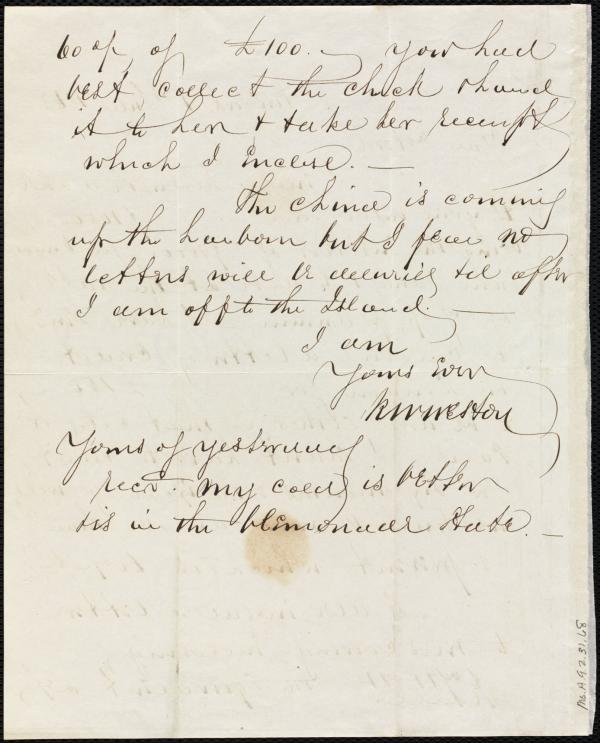 60 of £100. – You had
best collect the check & hand
it to her & take her receipt
which I Enclose. —
The China is coming
up the harbour but I fear no
letters will be delivered til after
I am off to the Island. —
I am
Yours Ever
R W Weston
Yours of yesterday
recd. My cold is better
tis in the Lemonade State. —
Ms. A 9.2.31.68